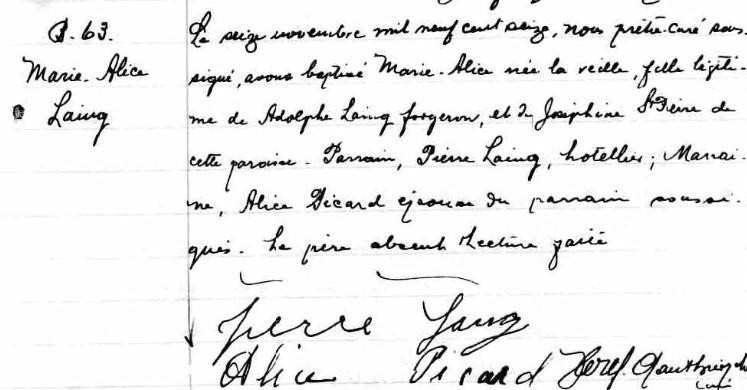 B. 63.
Marie-Alice
Laing
Le seize novembre mil neuf cent seize, nous prêtre-curé sous-
signé, avons baptisé Marie-Alice née la veille, fille légiti-
me de Adolphe Laing forgeron, et de Joséphine St Pierre de
cette paroisse. Parrain, Pierre Laing, hotellier; Marrai-
ne, Alice Picard épouse du parrain soussi-
gnés. Le père absent Lecture faite
Pierre Laing
Alice Picard Jos.